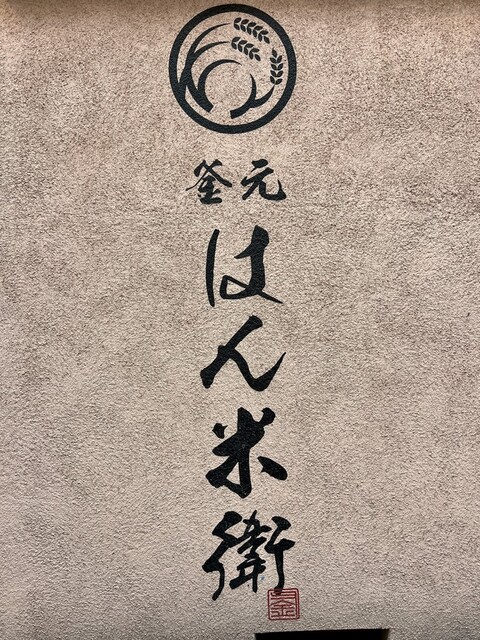 釜元
はん米衛